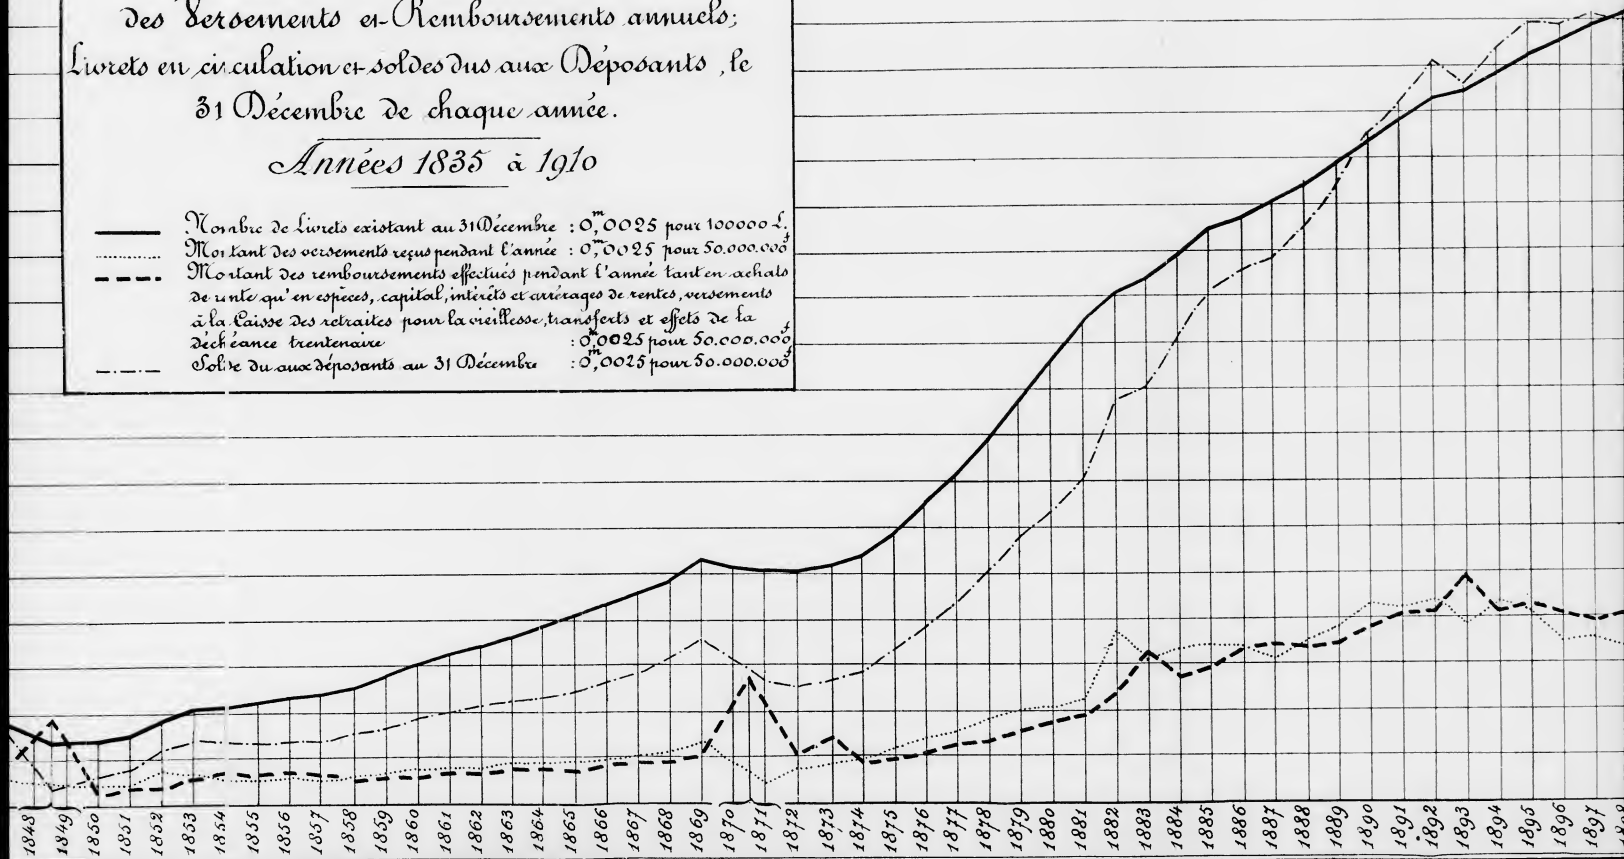 des Versements et Remboursements annuels;
Livrets en circulation et soldes dus aux Déposants, le
31 Décembre de chaque année.
Années 1835 à 1910
Nombre de Livrets existant au 31 Décembre : 0,^m0025 pour 100000 L.
Montant des versements reçus pendant l'année : 0,^m0025 pour 50.000.000^f
Montant des remboursements effectués pendant l'année tant en achats
de rente qu'en espèces, capital, intérêts et arrérages de rentes, versements
à la Caisse des retraites pour la vieillesse, transferts et effets de la
déchéance trentenaire : 0,^m0025 pour 50.000.000^f
Solde du aux déposants au 31 Décembre : 0,^m0025 pour 50.000.000^f
1848 1849 1850 1851 1852 1853 1854 1855 1856 1857 1858 1859 1860 1861 1862 1863 1864 1865 1866 1867 1868 1869 1870 1871 1872 1873 1874 1875 1876 1877 1878 1879 1880 1881 1882 1883 1884 1885 1886 1887 1888 1889 1890 1891 1892 1893 1894 1895 1896 1897